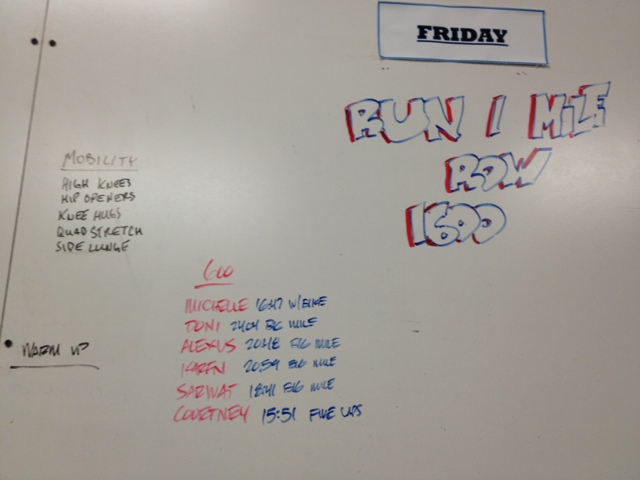 FRIDAY
RUN 1 MILE
ROW
1600
MOBILITY
HIGH KNEES
HIP OPENERS
KNEE HUGS
QUAD STRETCH
SIDE LUNGE
WARM UP
MICHELLE 16:47 W/BIKE
TONI 24:04 BIG MILE
ALEXUS 20:48 BIG MILE
KAREN 20:59 BIG MILE
SARWAT 18:41 BIG MILE
COURTNEY 15:51 FIVE LAPS